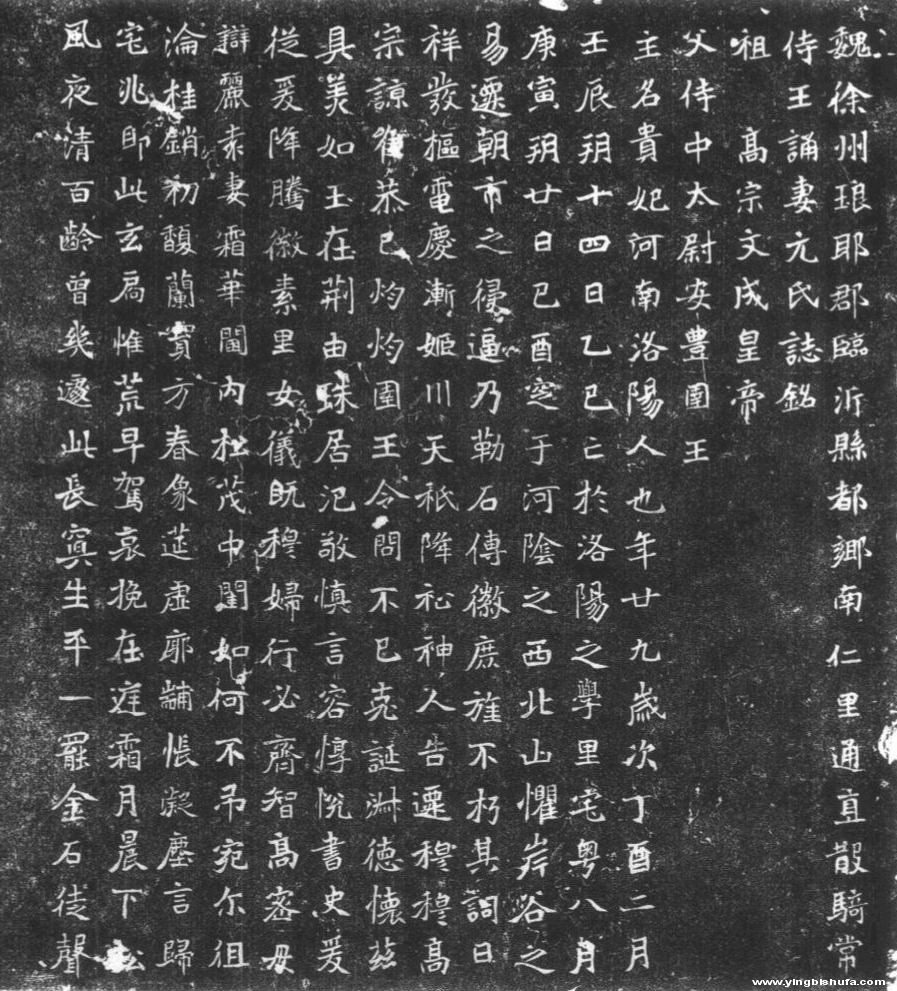 魏徐州琅耶郡臨沂縣都鄉南仁里通直散騎常
侍王誦妻元氏誌銘
祖高宗文成皇帝
父侍中太尉安豐圉王
主名貴妃河南洛陽人也年廿九歲次丁酉二月
壬辰朔十四日乙巳亡於洛陽之學里宅粵八月
庚寅朔廿日己酉窆于河陰之西北山懼岸谷之
易遷朝市之侵逼乃勒石傳徽庶旌不朽其詞曰
祥發樞電慶漸姬川天秖降祉神人告遷穆穆高
宗諒唯恭己灼灼圉王令問不已克誕淋德懷茲
具美如玉在荆由珠居汜敬慎言容惇悅書史爰
從爰降騰徽素里女儀既穆婦行必齊智高密毋
辯麗素妻霜華閫内松茂中閨如何不弔宛尔徂
淪桂銷初馥蘭賁方春像莚虛廓黼悵凝塵言歸
宅兆即此玄扃惟荒早駕哀挽在庭霜月晨下松
風夜清百齡曾幾遽此長寞生平一罷金石徒聲
www.yingbishufa.com